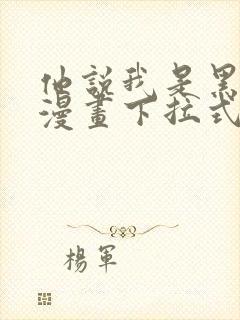 他說我是黑
漫畫下拉式
楊軍